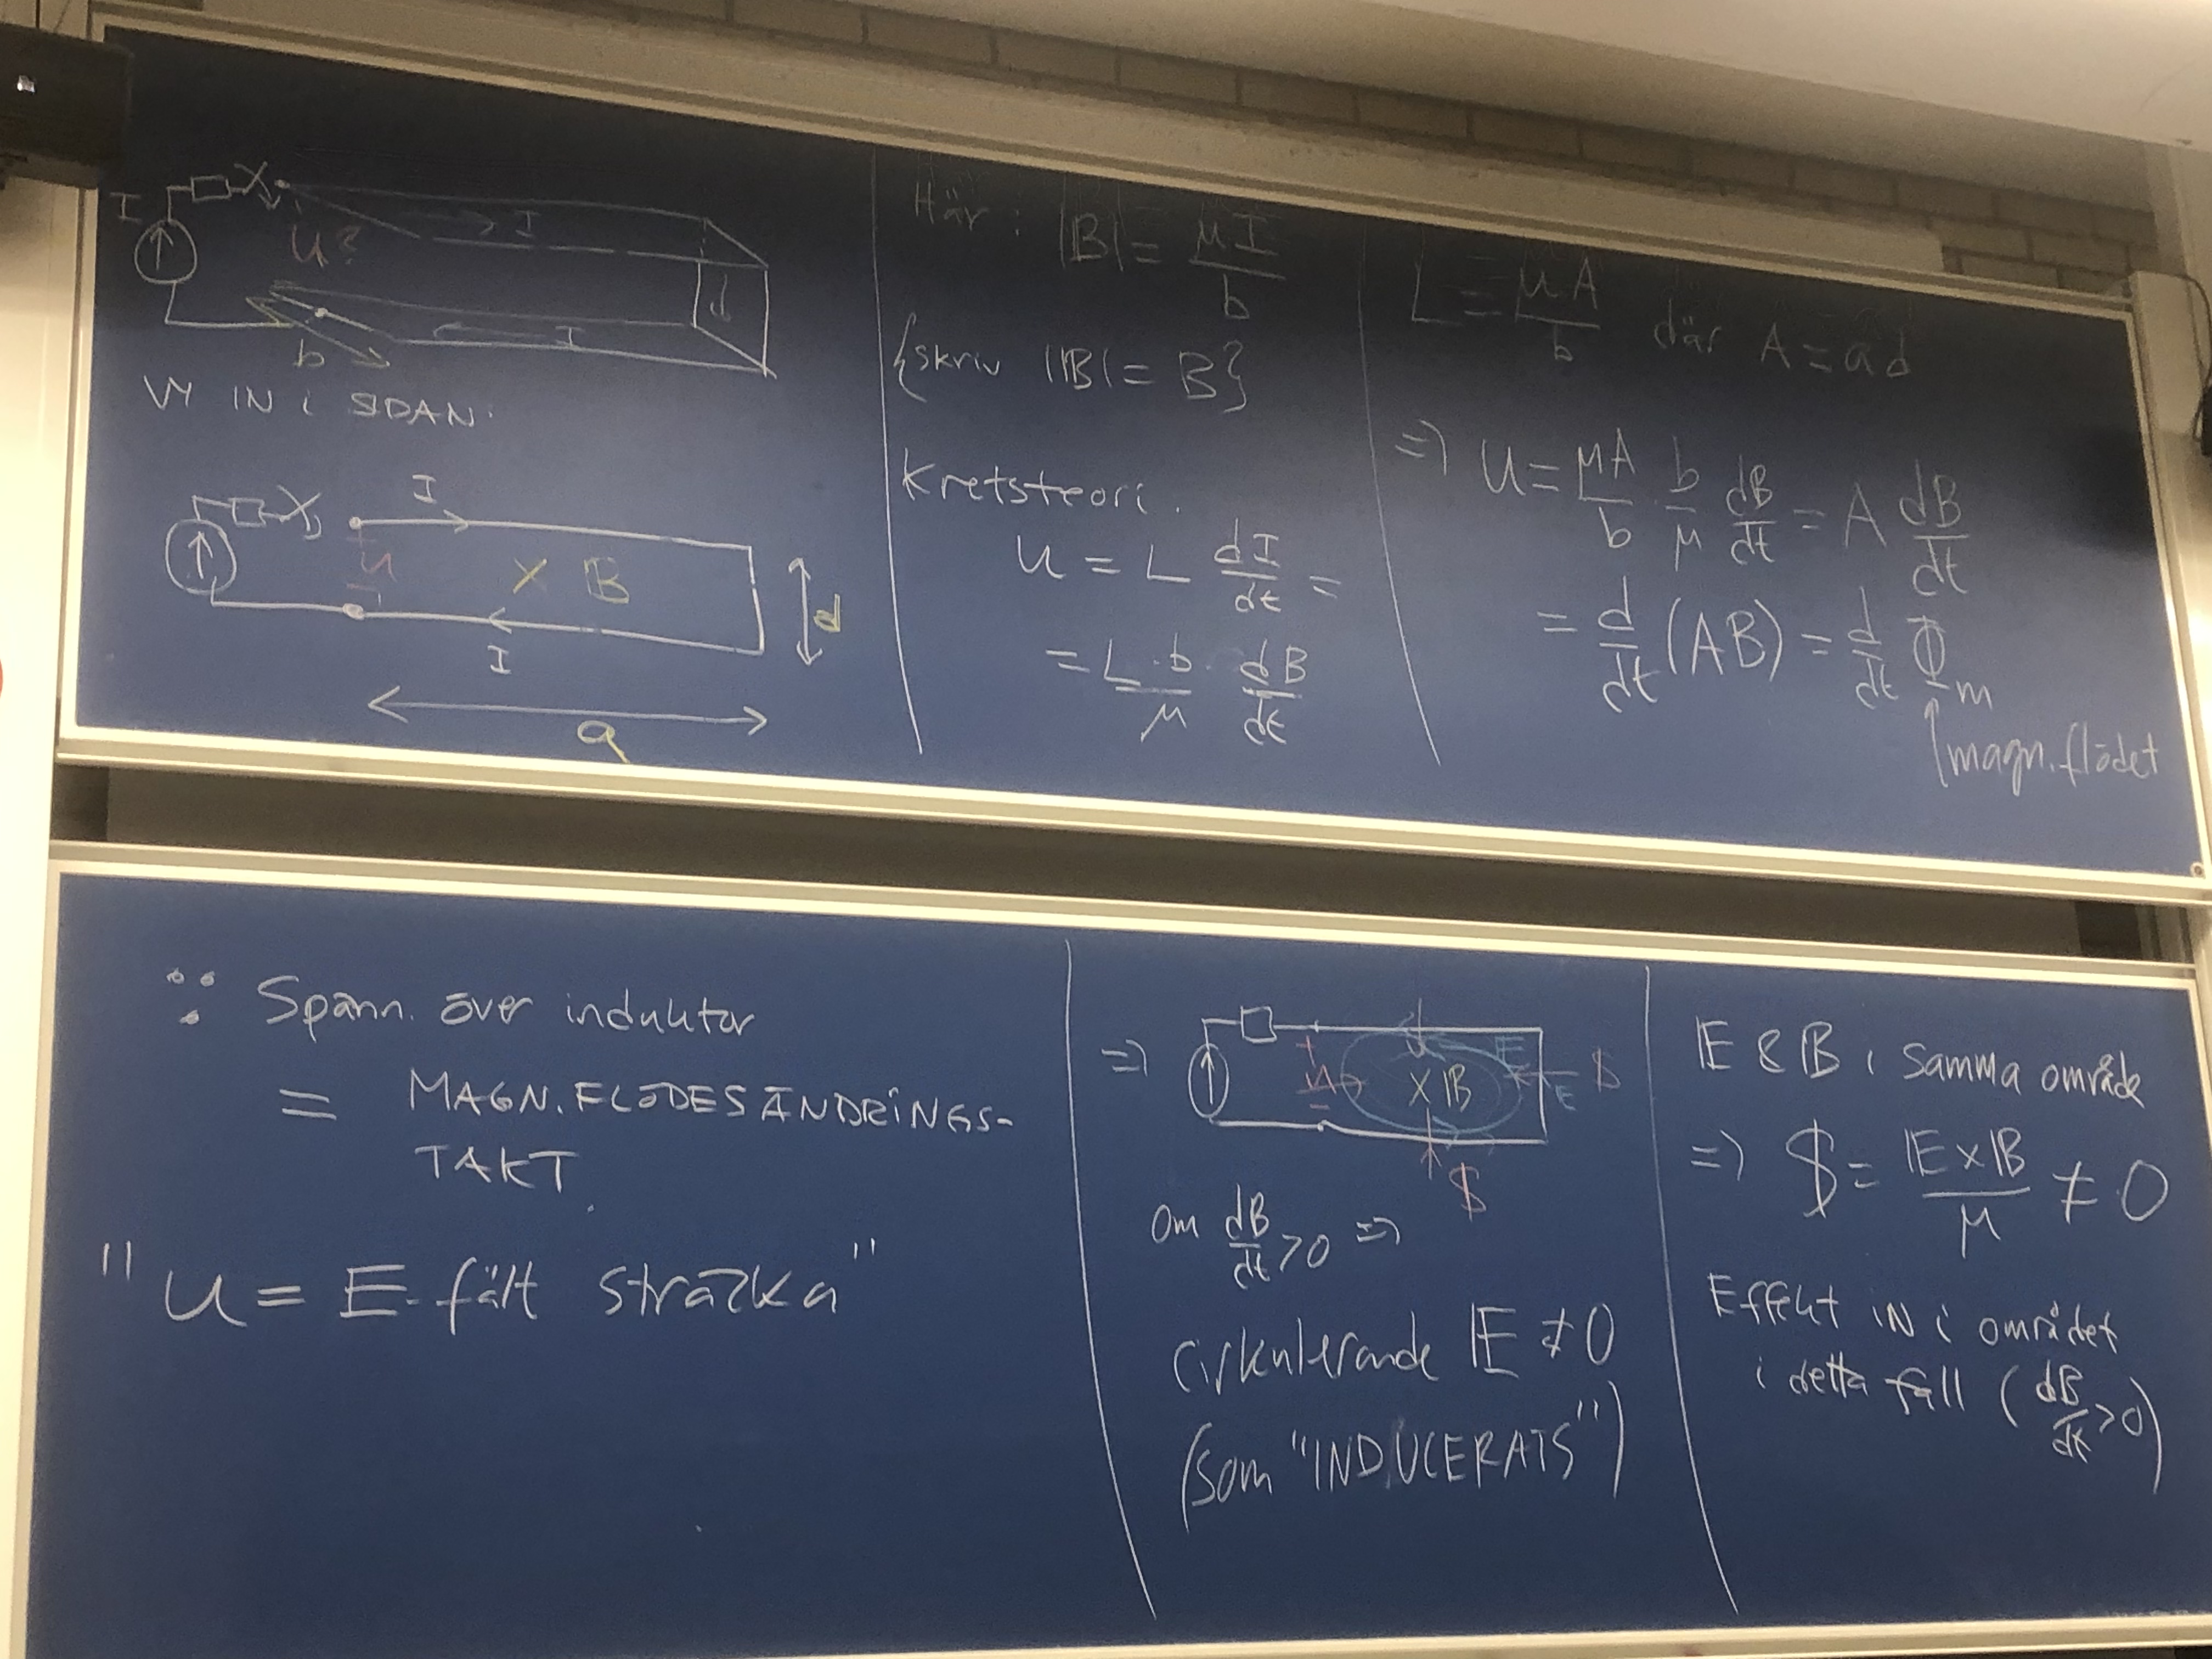 I
I
u?
d
I
b
VY IN I SIDAN.
I
+
u
-
X B
d
I
a
Här: |B| = μI/b
{skriv |B| = B}
Kretsteori.
u = L dI/dt =
= L · b/μ · dB/dt
L = μA/b där A = ad
=> u = μA/b · b/μ dB/dt = A dB/dt
= d/dt (AB) = d/dt Φm
magn.flödet
∵ Spänn. över induktor
= MAGN.FLÖDESÄNDRINGS-
TAKT.
"u = E-fält sträcka"
=>
+
u
-
X B
E
E
S
S
Om dB/dt > 0 =>
cirkulerande E ≠ 0
(som "INDUCERATS")
E & B i samma område
=> S = E×B/μ ≠ 0
Effekt IN i området
i detta fall (dB/dt > 0)